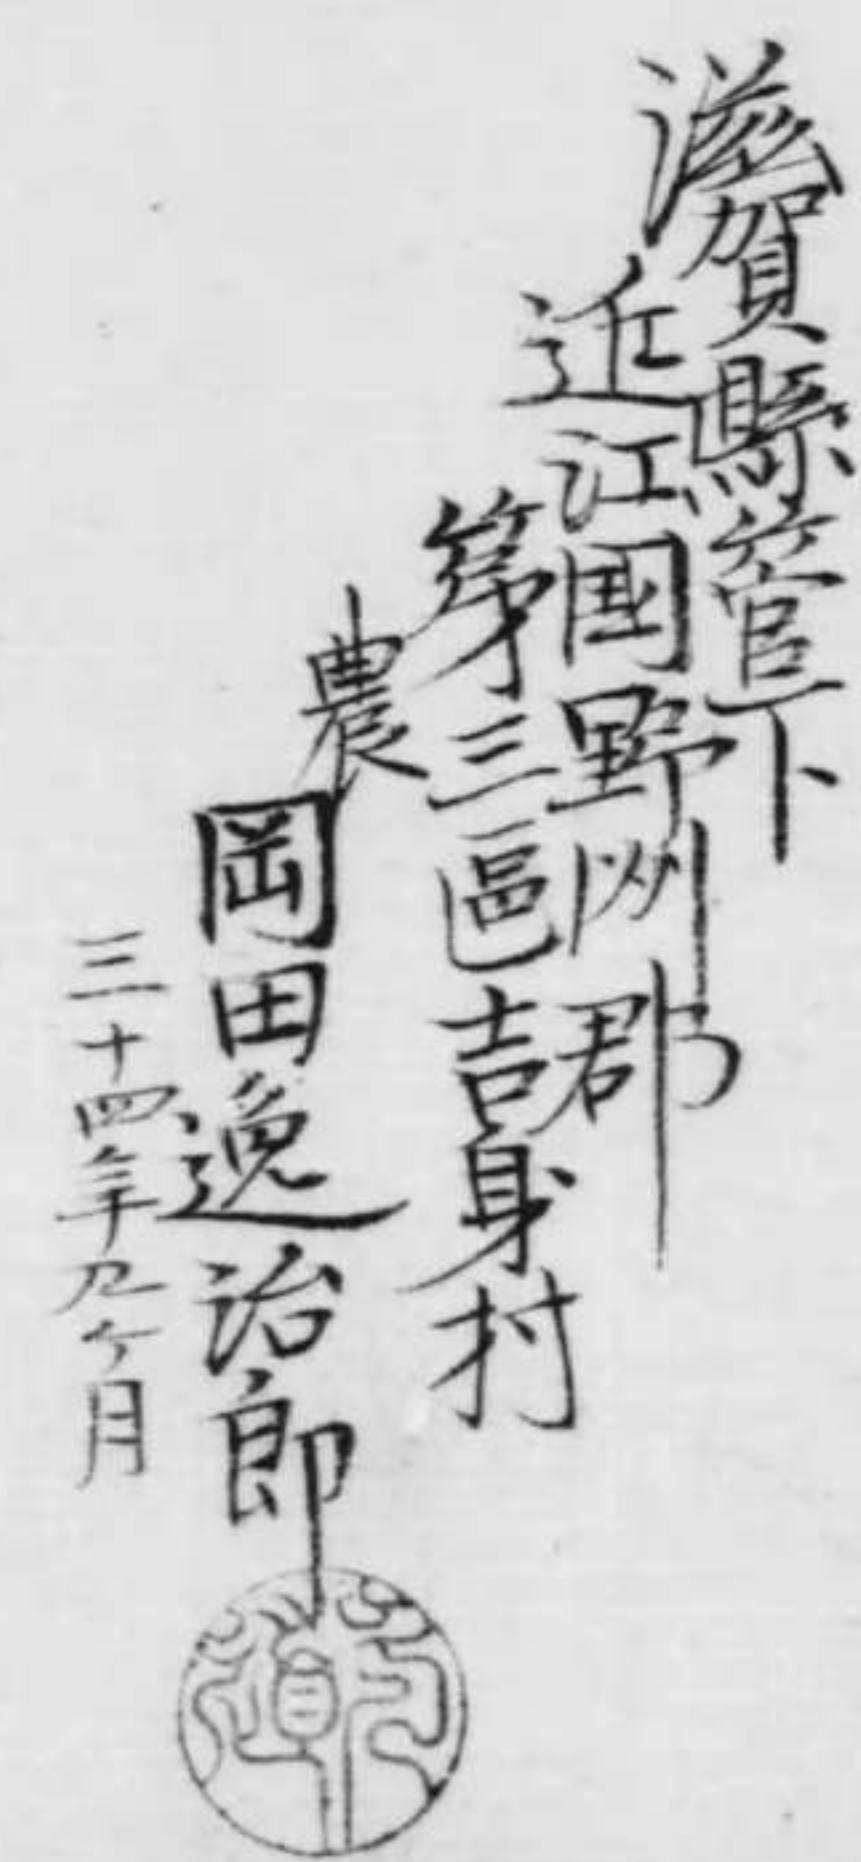 滋賀縣管下
近江國野洲郡
第三區吉身村
農
岡田逸治郎
三十四年九ケ月